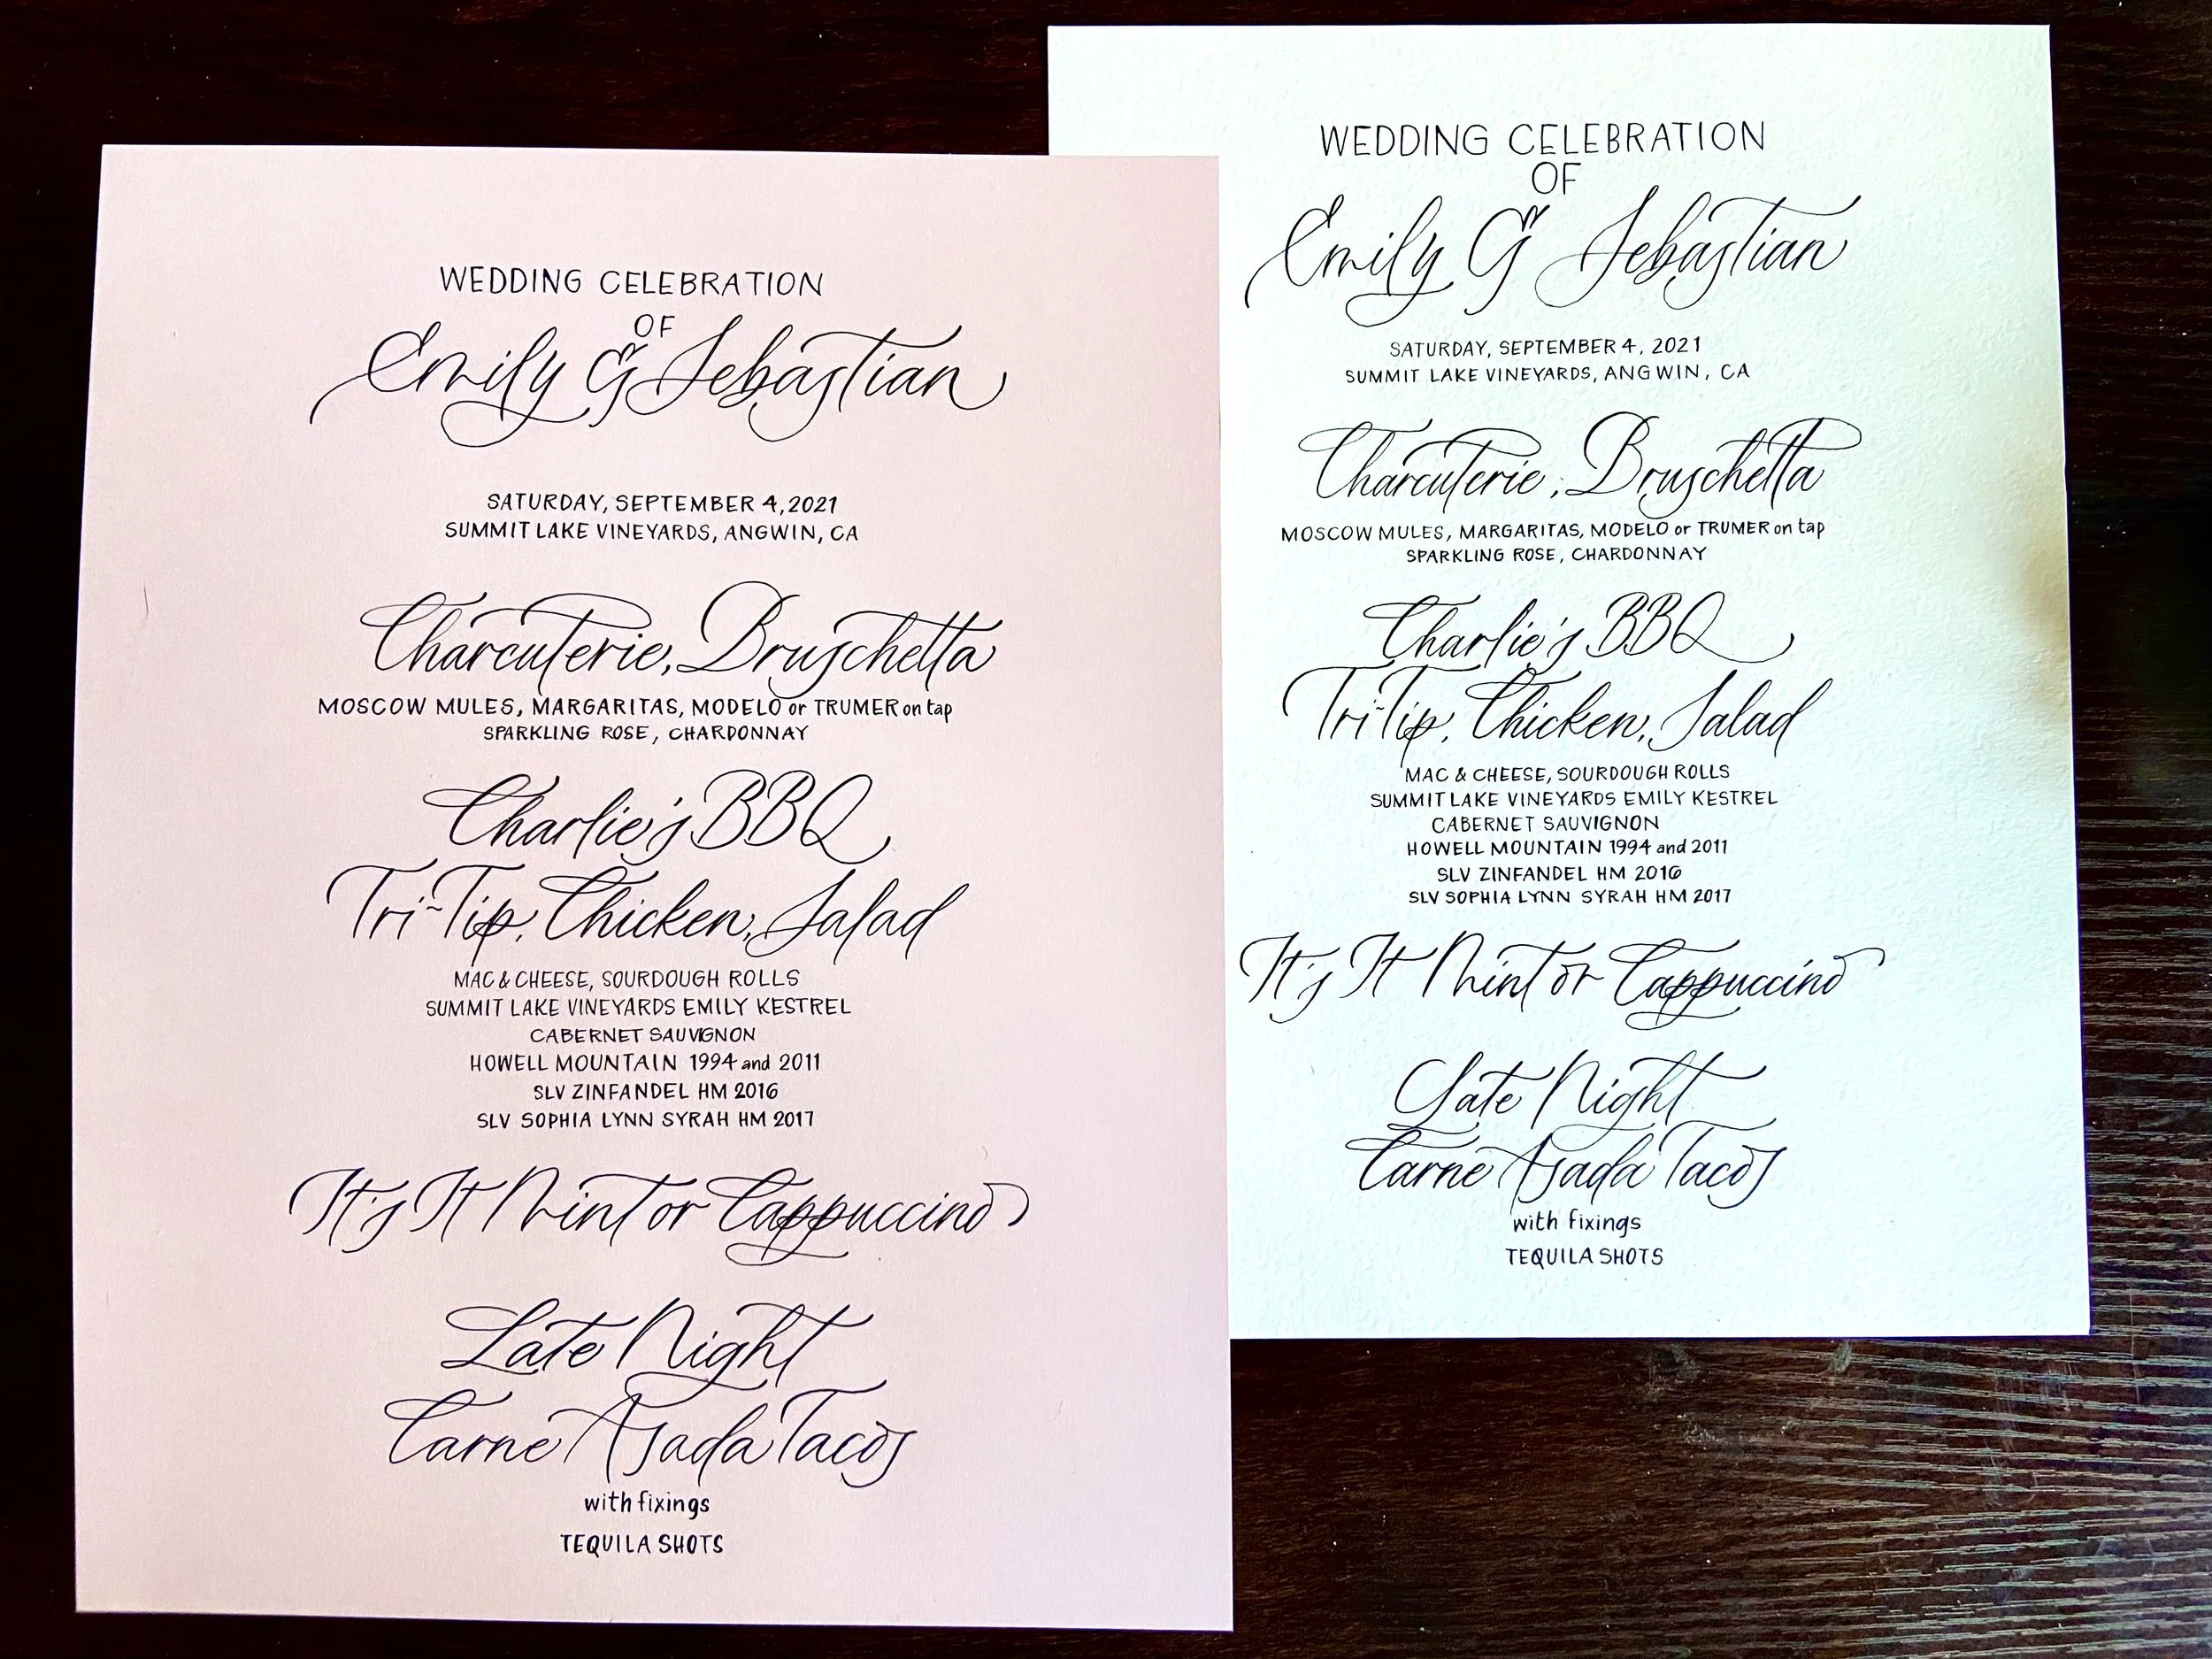 WEDDING CELEBRATION
OF
Emily & Sebastian
SATURDAY, SEPTEMBER 4, 2021
SUMMIT LAKE VINEYARDS, ANGWIN, CA
Charcuterie, Bruschetta
MOSCOW MULES, MARGARITAS, MODELO or TRUMER on tap
SPARKLING ROSE, CHARDONNAY
Charlie's BBQ
Tri-Tip, Chicken, Salad
MAC & CHEESE, SOURDOUGH ROLLS
SUMMIT LAKE VINEYARDS EMILY KESTREL
CABERNET SAUVIGNON
HOWELL MOUNTAIN 1994 and 2011
SLV ZINFANDEL HM 2016
SLV SOPHIA LYNN SYRAH HM 2017
It's It Mint or Cappuccino
Late Night
Carne Asada Tacos
with fixings
TEQUILA SHOTS
WEDDING CELEBRATION
OF
Emily & Sebastian
SATURDAY, SEPTEMBER 4, 2021
SUMMIT LAKE VINEYARDS, ANGWIN, CA
Charcuterie, Bruschetta
MOSCOW MULES, MARGARITAS, MODELO or TRUMER on tap
SPARKLING ROSE, CHARDONNAY
Charlie's BBQ
Tri-Tip, Chicken, Salad
MAC & CHEESE, SOURDOUGH ROLLS
SUMMIT LAKE VINEYARDS EMILY KESTREL
CABERNET SAUVIGNON
HOWELL MOUNTAIN 1994 and 2011
SLV ZINFANDEL HM 2016
SLV SOPHIA LYNN SYRAH HM 2017
It's It Mint or Cappuccino
Late Night
Carne Asada Tacos
with fixings
TEQUILA SHOTS